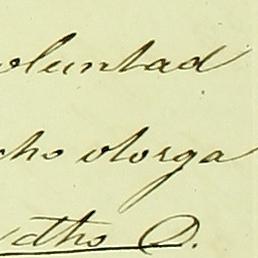 oluntad
cho otorga
dho D.